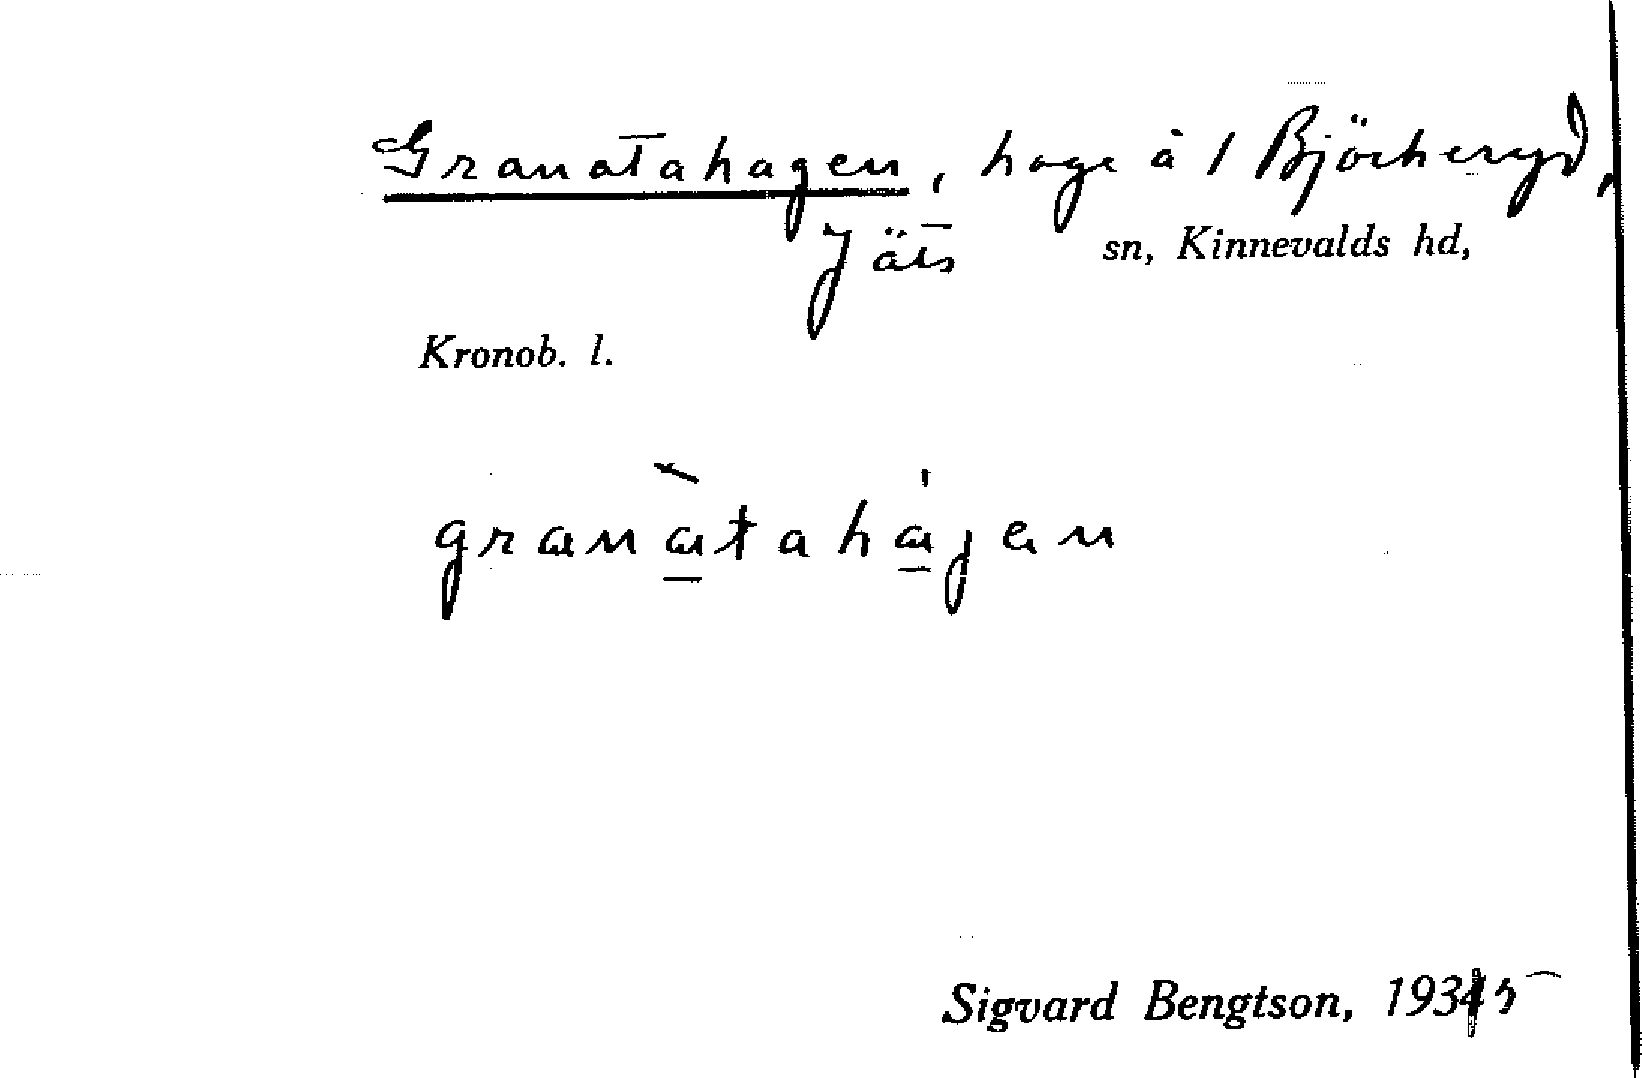 Granatahagen, hage å 1 Björkeryd,
Jäts sn, Kinnevalds hd,
Kronob. l.
granatahagen
Sigvard Bengtson, 1935